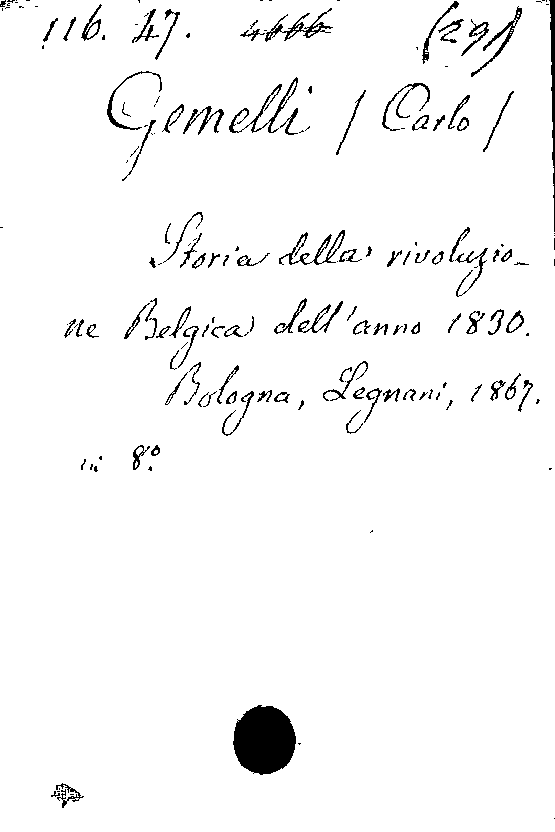 116. 47. 4666 (291)
Gemelli / Carlo /
Storia della rivoluzio-
ne Belgica dell'anno 1830.
Bologna, Legnani, 1867.
in 8º